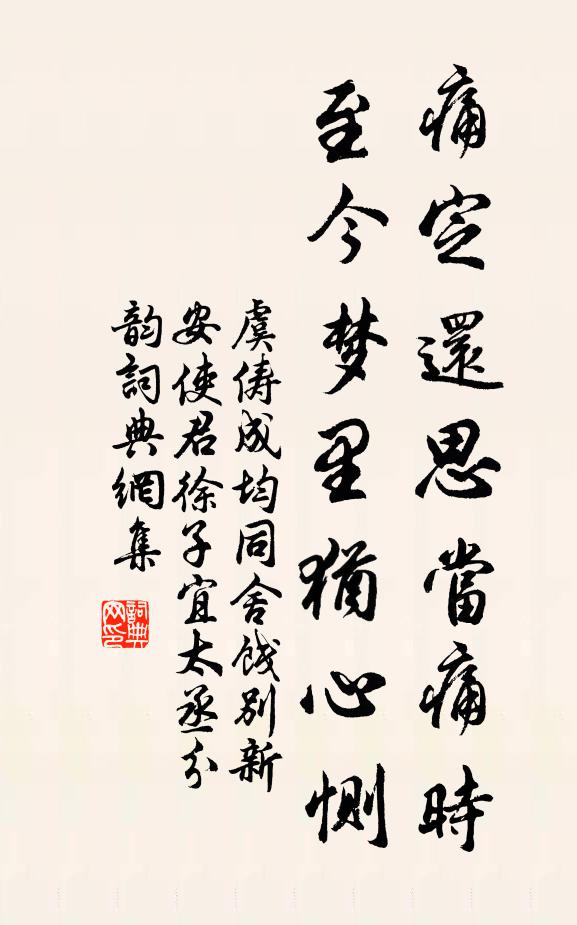 痛定還思當痛時
至今梦里猶心惻
虞俦成均同舍餞别新
安使君徐子宜太丞分
韵詞典網集
詞典
网印